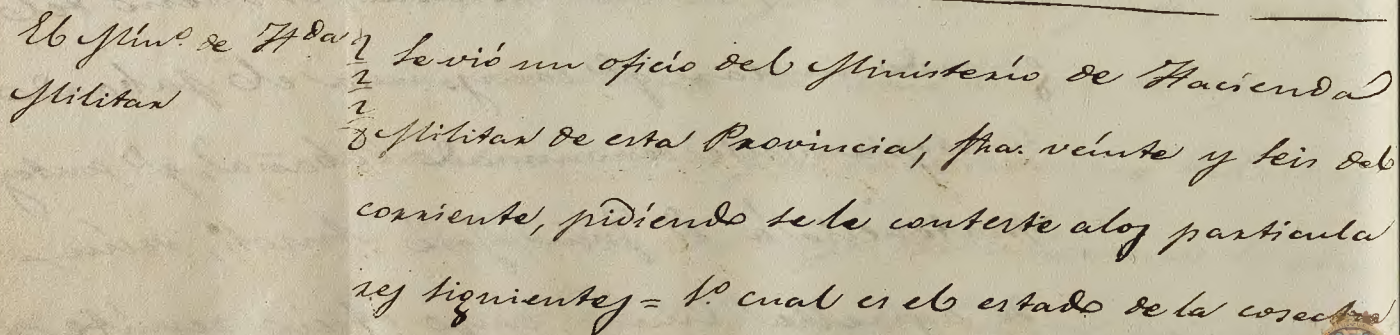 El Mín.º de H.da
Militar
Se vió un oficio del Ministerio de Hacienda
Militar de esta Provincia, fha. veinte y seis del
corriente, pidiendo se le conteste alos particula
res siguientes = 1.º cual es el estado de la cosecha